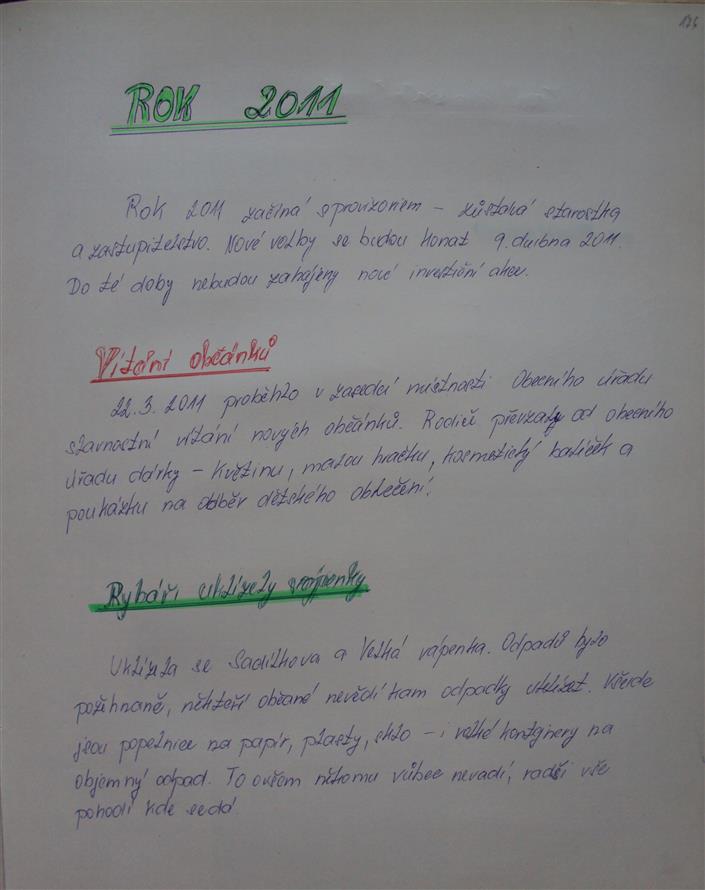 174
ROK 2011
Rok 2011 začíná s provizoriem – zůstává starostka
a zastupitelstvo. Nové volby se budou konat 9. dubna 2011.
Do té doby nebudou zahájeny nové investiční akce.
Vítání občánků
22.3. 2011 proběhlo v zasedací místnosti Obecního úřadu
slavnostní vítání nových občánků. Rodiče převzaly od obecního
úřadu dárky – květinu, malou hračku, kosmetický balíček a
poukázku na odběr dětského oblečení.
Rybáři uklízely vápenky
Uklízela se Sadílkova a Velká vápenka. Odpadů bylo
požehnaně, někteří občané nevědí kam odpadky uklízet. Všude
jsou popelnice na papír, plasty, sklo – i velké kontejnery na
objemný odpad. To ovšem někomu vůbec nevadí, radši vše
pohodí kde se dá